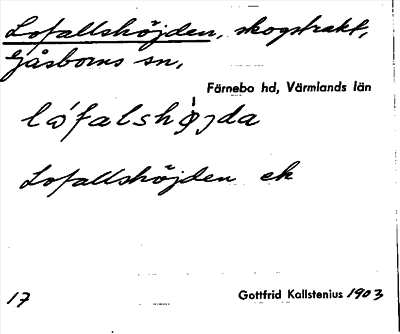 Lofallshöjden, skogstrakt,
Gåsborns sn,
Färnebo hd, Värmlands län
Lofallshöjden ek
17 Gottfrid Kallstenius 1903